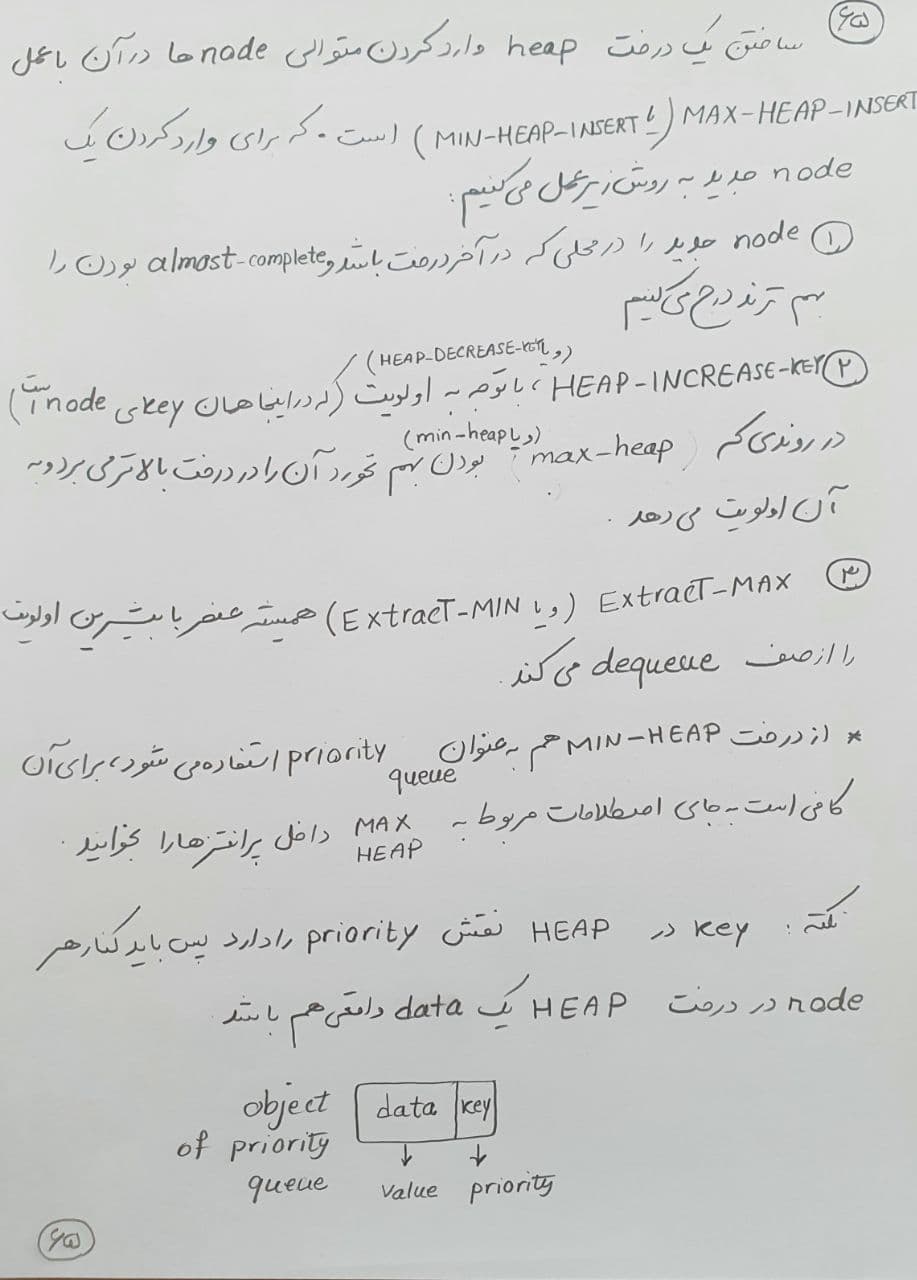 ۶۵
ساختن یک درخت heap وارد کردن متوالی node ها در آن با عمل
MAX-HEAP-INSERT (یا MIN-HEAP-INSERT) است. که برای وارد کردن یک
node جدید به روش زیر عمل می‌کنیم:
① node جدید را در محلی که در آخر درخت باشد و almost-complete بودن را
بهم نزند درج می‌کنیم
(و یا HEAP-DECREASE-KEY)
② HEAP-INCREASE-KEY، با توجه به اولویت (که در اینجا همان key ی node است)
(و یا min-heap)
در روندی که max-heap بودن بهم نخورد آن را در درخت بالاتر می‌برد و به
آن اولویت می‌دهد.
③ ExtracT-MAX (و یا ExtracT-MIN) همیشه عنصر با بیشترین اولویت
را از صف dequeue می‌کند.
* از درخت MIN-HEAP هم به عنوان priority queue استفاده می‌شود، برای آن
کافی است به جای اصطلاحات مربوط به MAX HEAP داخل پرانتزها را بخوانید.
نکته: key در HEAP نقش priority را دارد پس باید کنار هر
node در درخت HEAP یک data واقعی هم باشد.
object data key
of priority
queue value priority
۶۵